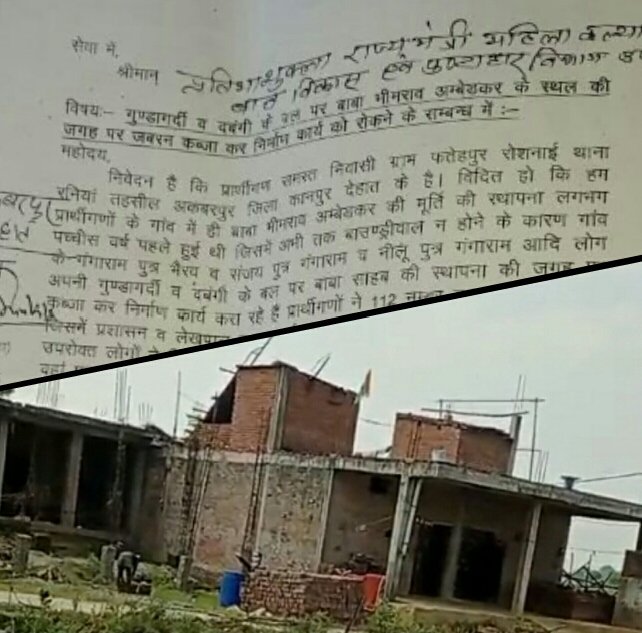 सेवा में,
श्रीमान प्रतिभा शुक्ला राज्यमंत्री महिला कल्या
बाल विकास एवं पुष्टाहार विभाग उ
विषयः- गुण्डागर्दी व दबंगी के बल पर बाबा भीमराव अम्बेडकर के स्थल की
जगह पर जबरन कब्जा कर निर्माण कार्य को रोकने के सम्बन्ध में :-
महोदय,
निवेदन है कि प्रार्थीगण समस्त निवासी ग्राम फतेहपुर रोशनाई थाना
रनियां तहसील अकबरपुर जिला कानपुर देहात के है। विदित हो कि हम
प्रार्थीगणों के गांव में ही बाबा भीमराव अम्बेडकर की मूर्ति की स्थापना लगभग
पच्चीस वर्ष पहले हुई थी जिसमें अभी तक बाउण्ड्रीवाल न होने के कारण गांव
के गंगाराम पुत्र भैरव व संजय पुत्र गंगाराम व नीलू पुत्र गंगाराम आदि लोग
अपनी गुण्डागर्दी व दबंगी के बल पर बाबा साहब की स्थापना की जगह
कब्जा कर निर्माण कार्य करा रहे हैं प्रार्थीगणों ने 112
जिसमें प्रशासन व लेखपाल
उपरोक्त लोगों